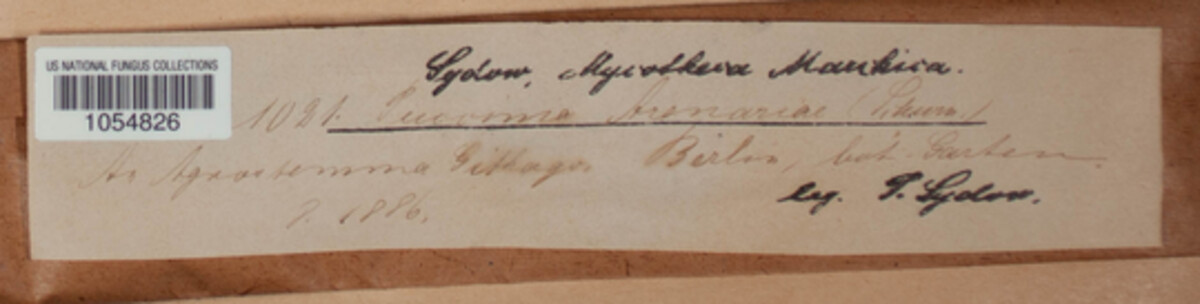 US NATIONAL FUNGUS COLLECTIONS
1054826
Sydow, Mycotheca Marchica.
1021. Puccinia Arenariae (Schum.)
An Agrostemma Githago. Berlin, bot. Garten.
7. 1886.
leg. P. Sydow.